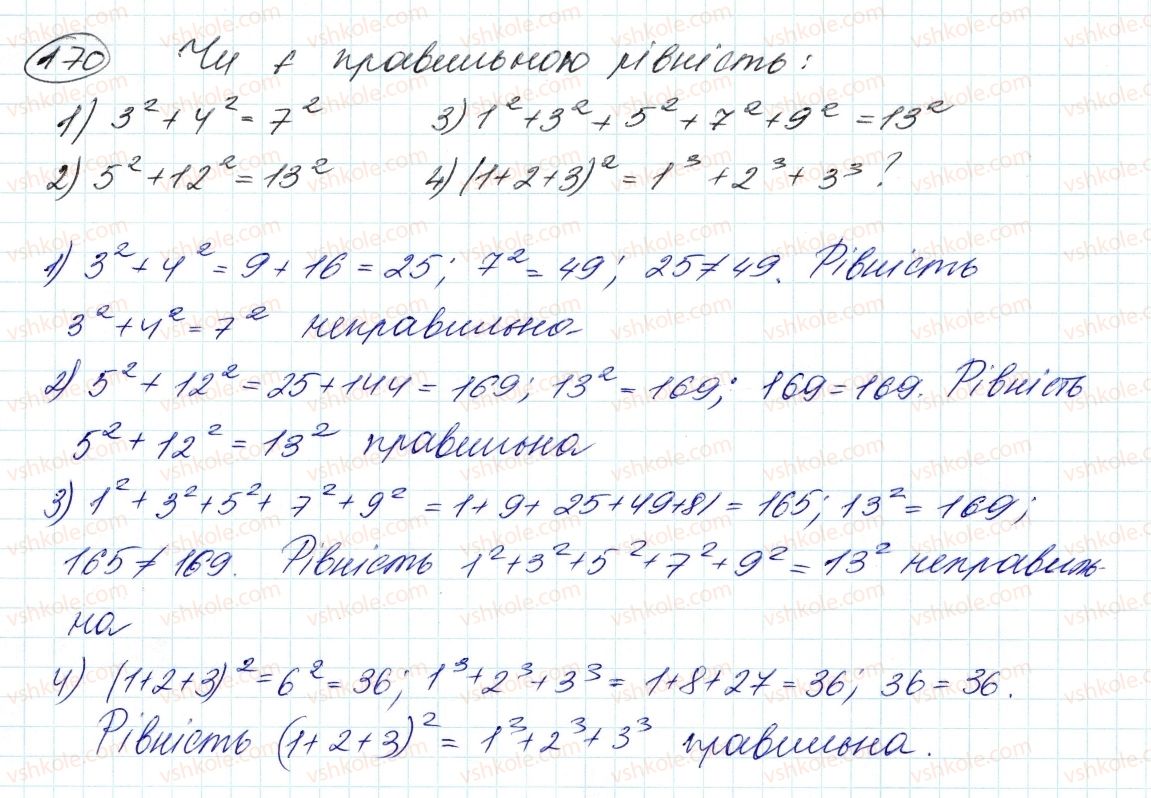 170 Чи є правильною рівність:
1) 3² + 4² = 7² 3) 1² + 3² + 5² + 7² + 9² = 13²
2) 5² + 12² = 13² 4) (1 + 2 + 3)² = 1³ + 2³ + 3³ ?
1) 3² + 4² = 9 + 16 = 25; 7² = 49; 25 ≠ 49. Рівність
3² + 4² = 7² неправильна
2) 5² + 12² = 25 + 144 = 169; 13² = 169; 169 = 169. Рівність
5² + 12² = 13² правильна
3) 1² + 3² + 5² + 7² + 9² = 1 + 9 + 25 + 49 + 81 = 165; 13² = 169;
165 ≠ 169. Рівність 1² + 3² + 5² + 7² + 9² = 13² неправиль-
на
4) (1 + 2 + 3)² = 6² = 36; 1³ + 2³ + 3³ = 1 + 8 + 27 = 36; 36 = 36.
Рівність (1 + 2 + 3)² = 1³ + 2³ + 3³ правильна.
vshkole.com